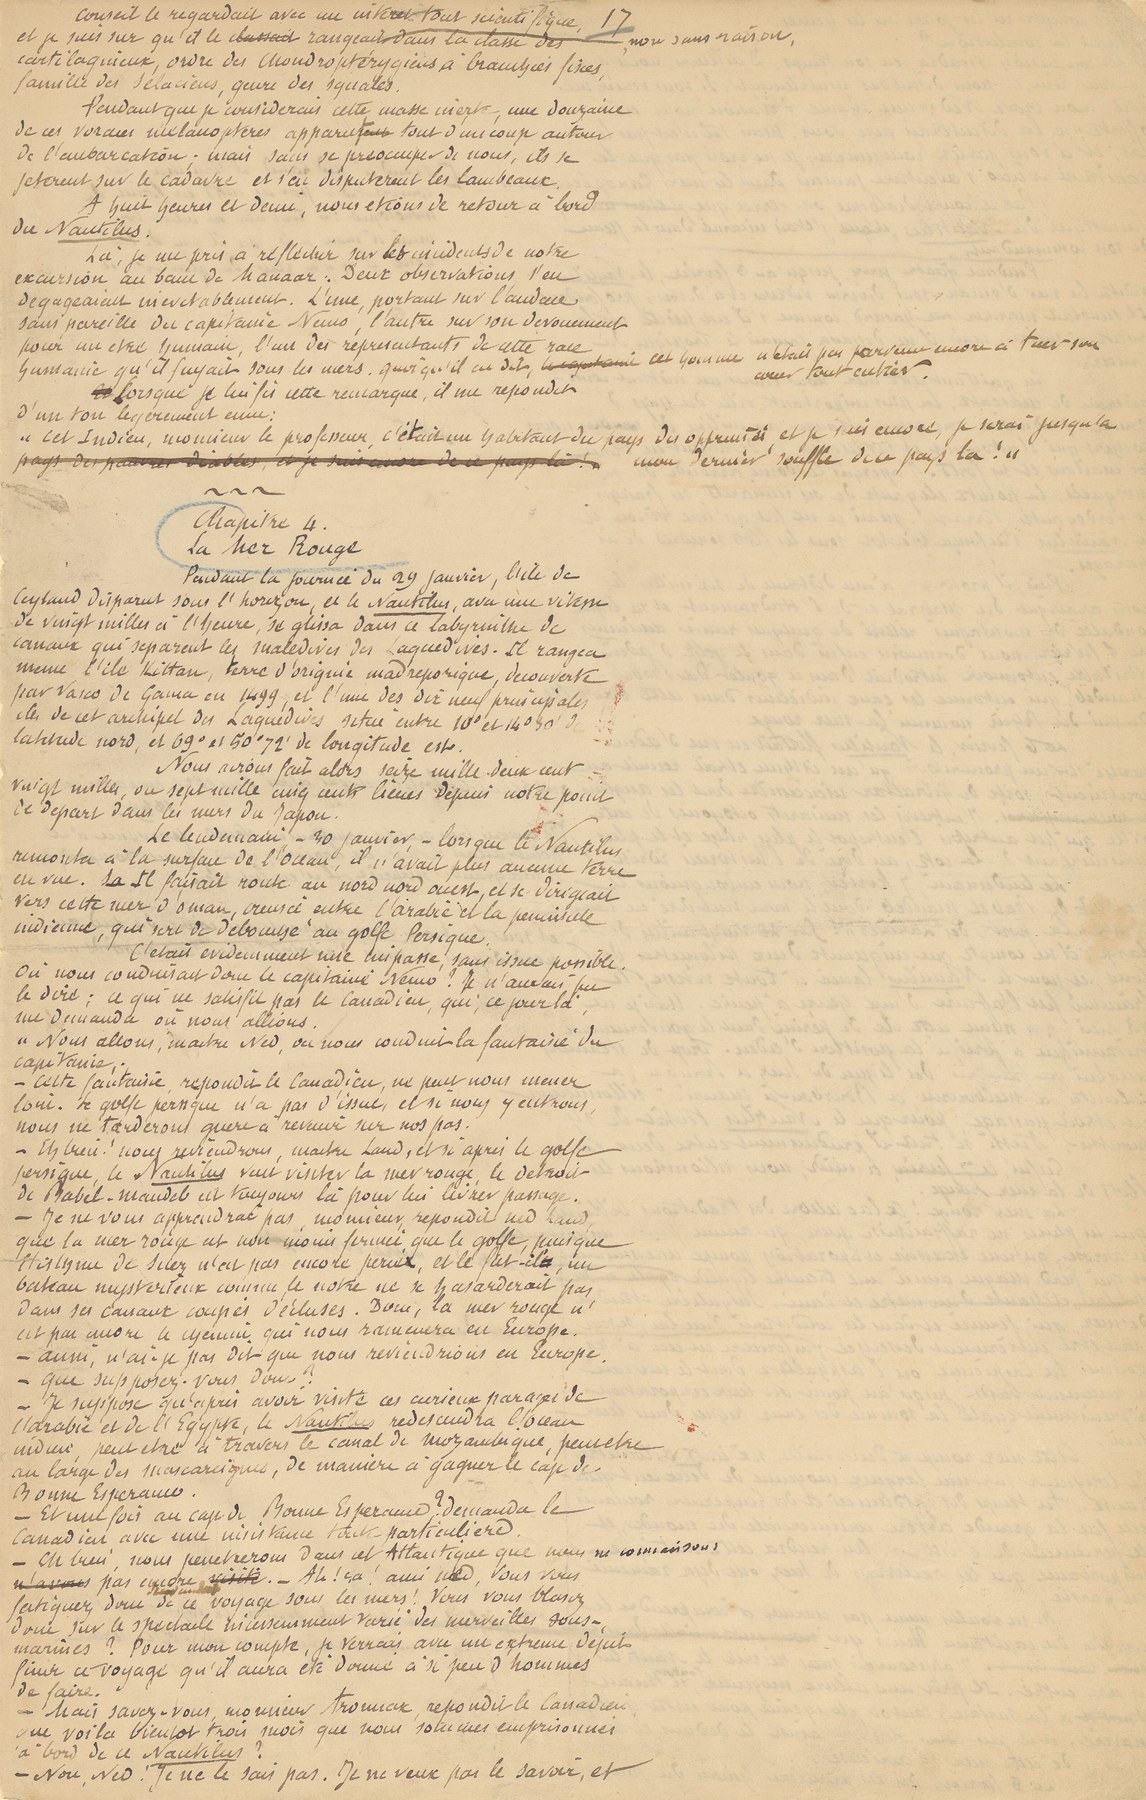 Conseil le regardait avec un intérêt tout scientifique, 17
et je suis sur qu'il le classait rangeait dans la classe des non sans raison,
cartilagineux, ordre des Chondroptérygiens à branchies fixes,
famille des Sélaciens, genre des squales.
Pendant que je considérais cette masse inerte, une douzaine
de ces voraces mélanoptères apparut tout d'un coup autour
de l'embarcation ; mais sans se préoccuper de nous, ils se
jetèrent sur le cadavre et s'en disputèrent les lambeaux.
A huit heures et demi, nous étions de retour à bord
du Nautilus.
Là, je me pris à réfléchir sur les incidents de notre
excursion au banc de Manaar. Deux observations s'en
dégageaient inévitablement. L'une, portant sur l'audace
sans pareille du capitaine Nemo, l'autre sur son dévouement
pour un être humain, l'un des représentants de cette race
humaine qu'il fuyait sous les mers. quoiqu'il en dit, le capitaine cet homme n'était pas parvenu encore à tuer son
cœur tout entier.
lorsque je lui fis cette remarque, il me répondit
d'un ton légèrement ému :
" Cet Indien, monsieur le professeur, c'était un habitant du pays des opprimés et je suis encore, je serai jusqu'à
pays des pauvres diables, et je suis encore de ce pays là ! " mon dernier souffle de ce pays là ! "
Chapitre 4.
La Mer Rouge
Pendant la journée du 29 janvier, l'île de
Ceyland disparut sous l'horizon, et le Nautilus, avec une vitesse
de vingt milles à l'heure, se glissa dans ce labyrinthe de
canaux qui séparent les Maledives des Laquedives. Il rangea
même l'île Kittan, terre d'origine madréporique, découverte
par Vasco de Gama en 1499, et l'une des dix neuf principales
îles de cet archipel des Laquedives situé entre 10° et 14° 30' de
latitude nord, et 69° et 50° 72' de longitude est.
Nous avions fait alors seize mille deux cent
vingt milles, ou sept mille cinq cents lieues depuis notre point
de départ dans les mers du Japon.
Le lendemain – 30 janvier, – lorsque le Nautilus
remonta à la surface de l'Océan, il n'avait plus aucune terre
en vue. Il faisait route au nord nord ouest, et se dirigeait
vers cette mer d'Oman, creusée entre l'Arabie et la péninsule
indienne, qui sert de débouché au golfe Persique.
C'était évidemment une impasse, sans issue possible.
Où nous conduisait donc le capitaine Nemo ? Je n'aurais pu
le dire ; ce qui ne satisfit pas le Canadien, qui, ce jour là,
me demanda où nous allions.
" Nous allons, maître Ned, où nous conduit la fantaisie du
capitaine.
– Cette fantaisie, répondit le Canadien, ne peut nous mener
loin. Le golfe persique n'a pas d'issue, et si nous y entrons,
nous ne tarderons guère à revenir sur nos pas.
– Eh bien ! nous reviendrons, maître Land, et si après le golfe
persique, le Nautilus veut visiter la mer rouge, le détroit
de Babel-mandeb est toujours là pour lui livrer passage.
– Je ne vous apprendrai pas, monsieur, répondit Ned Land,
que la mer rouge est non moins fermée que le golfe, puisque
l'isthme de Suez n'est pas encore percé, et le fut-il, un
bateau mystérieux comme le notre ne se hasarderait pas
dans ses canaux coupés d'écluses. Donc, la mer rouge n'
est pas encore le chemin qui nous ramènera en Europe.
– aussi, n'ai-je pas dit que nous reviendrions en Europe.
– Que supposez-vous donc ?
– Je suppose qu'après avoir visité ces curieux parages de
l'Arabie et de l'Egypte, le Nautilus redescendra l'Océan
indien, peut être à travers le canal de Mozambique, peut être
au large des Mascareignes, de manière à gagner le cap de
Bonne Espérance.
– Et une fois au cap de Bonne Espérance ? demanda le
Canadien avec une insistance toute particulière.
– Eh bien, nous pénètrerons dans cet Atlantique que nous ne connaissons
n'avons pas encore visité. – Ah ! ça ! ami Ned, vous vous
fatiguez donc de ce voyage sous les mers ! Vous vous blasez
donc sur le spectacle incessamment varié des merveilles sous-
marines ? Pour mon compte, je verrais avec un extrême dépit
finir ce voyage qu'il aura été donné à si peu d'hommes
de faire.
– Mais savez-vous, monsieur Aronnax, répondit le Canadien,
que voilà bientôt trois mois que nous sommes emprisonnés
à bord de ce Nautilus ?
– Non, Ned ! Je ne le sais pas. Je ne veux pas le savoir, et